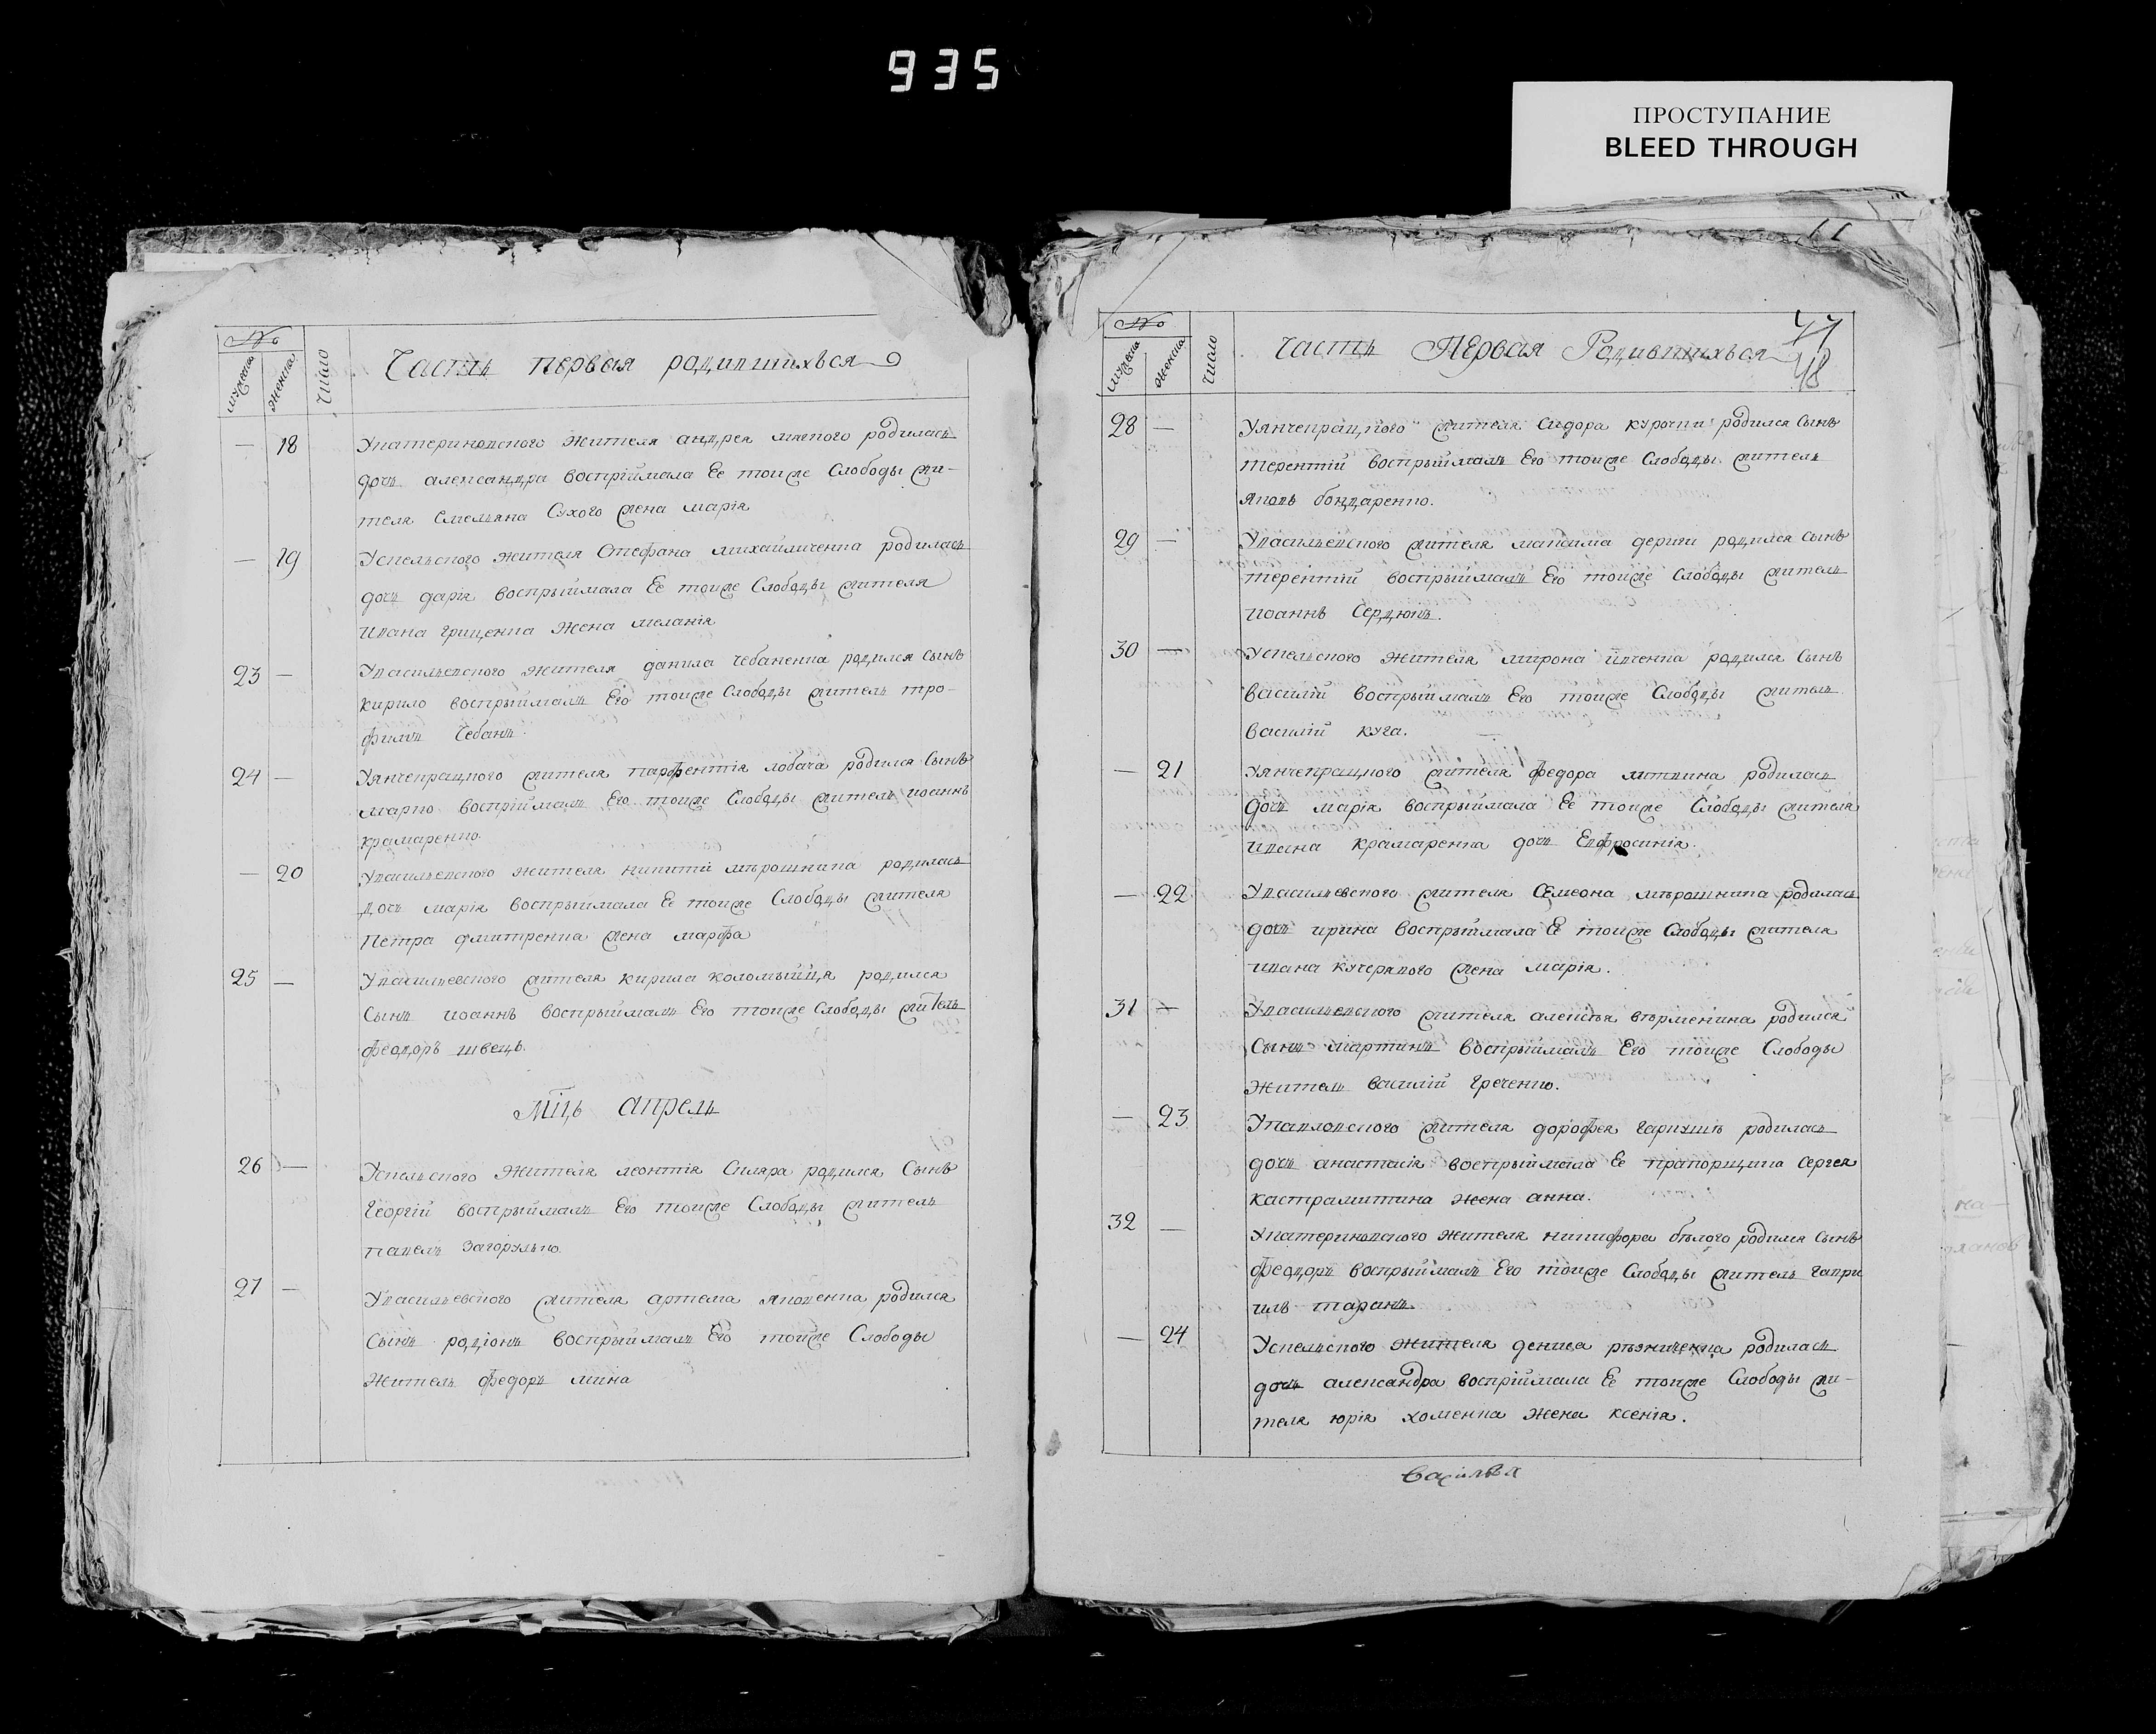 935
ПРОСТУПАНИЕ
BLEED THROUGH
№
мужеска
женска
число
Часть первая родившихъся
— 18 Укатериновского жителя андрея родилась
дочь александра воспріймала Ее тоиже Слободы жи-
теля Емельяна Сухого жена марія
— 19 Успельского жителя Стефана михайличенка родилась
дочь дарія воспрыймала Ее тоиже Слободы жителя
ивана гриценка жена меланія
23 — Увасильевского жителя данила чебаненка родился Сынъ
кирило воспрыймалъ Его тоиже Слободы житель тро-
фимъ Чебанъ.
24 — Уянчекрацкого жителя парфентія лобача родился Сынъ
марко воспріймалъ Его тоиже Слободы житель иоаннъ
крамаренко.
— 20 Увасильевского жителя никиты мѣрошника родилась
дочь марія воспрыймала Ее тоиже Слободы жителя
Петра дмитренка жена марфа
25 — Увасильевского жителя кирила коломыйця родился
Сынъ иоаннъ воспрыймалъ Его тоиже Слободы житель
феодоръ швецъ.
Мцъ апрель
26 — Успельского жителя леонтія Скляра родился Сынъ
Георгій воспрыймалъ Его тоиже Слободы житель
павелъ Загорулько
27 — Увасильевского жителя артема яковенка родился
Сынъ родіонъ воспрыймалъ Его тоиже Слободы
житель федоръ мина
47
48
№
мужеска
женска
число
часть Первая Родившихъся
28 — Уянчекрацкого жителя Сидора курочки родился Сынъ
терентій воспрыймалъ Его тоиже Слободы житель
яковъ бондаренко.
29 — Увасильевского жителя максима дериги родился Сынъ
терентій воспрыймалъ Его тоиже Слободы житель
иоаннъ Сердюкъ.
30 — Успельского жителя мирона ивченка родился Сынъ
василій воспрыймалъ Его тоиже Слободы житель
василій куга.
— 21 Уянчекрацкого жителя федора литвина родилась
дочь марія воспрыймала Ее тоиже Слободы жителя
ивана крамаренка дочь Евфросинія.
— 22 Увасильевского жителя Семеона мѣрошника родилась
дочь ирина воспрыймала Ее тоиже Слободы жителя
ивана кучерявого жена марія.
31 — Увасильевского жителя алексѣя вѣрменича родился
Сынъ мартинъ воспрыймалъ Его тоиже Слободы
житель василій Греченко.
— 23 Упавловского жителя дорофея гаркушѣ родилась
дочь анастасія воспрыймала Ее прапорщика Сергея
кастрамитина жена анна.
32 — Укатериновского жителя никифора бѣлого родился Сынъ
феодоръ воспрыймалъ Его тоиже Слободы житель гаври
илъ таранъ.
— 24 Успельского жителя дениса рѣзниченка родилась
дочь александра воспріймала Ее тоиже Слободы жи-
теля юрія хоменка жена ксенія.